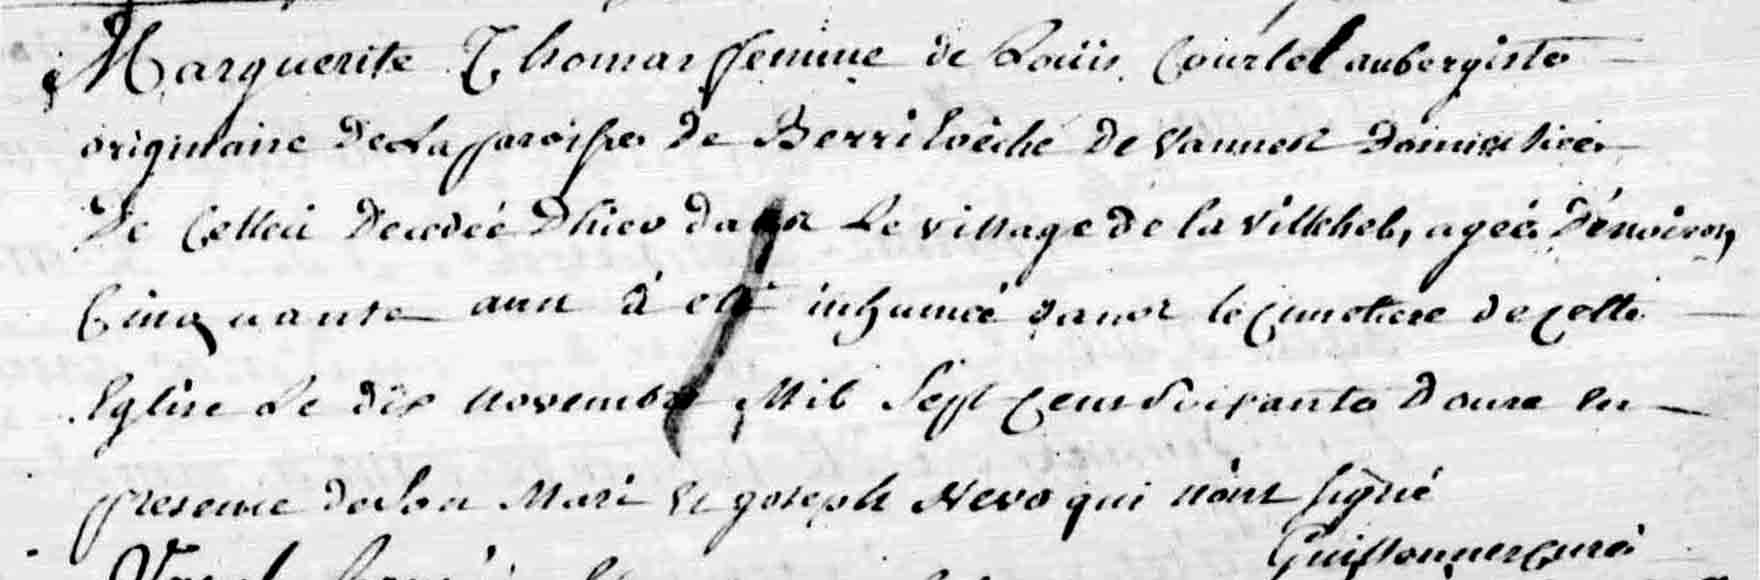 Marguerite Thomas ffemme de Loüis Courtel aubergiste
originaire de La ffaroisse de Berri Evèché de Vannes Domiciliée
De Celleci Decedée D'hier dans Le village de la Villeheb, agée D'enviroon
Cinquante ans à eté inhumée dans le Cimetiere de cette
Eglise Le dix novembre Mil Sept Cent Soixante Douze en
presence de Son Mari et joseph Nevo qui n'ont signé
Guillonner curé